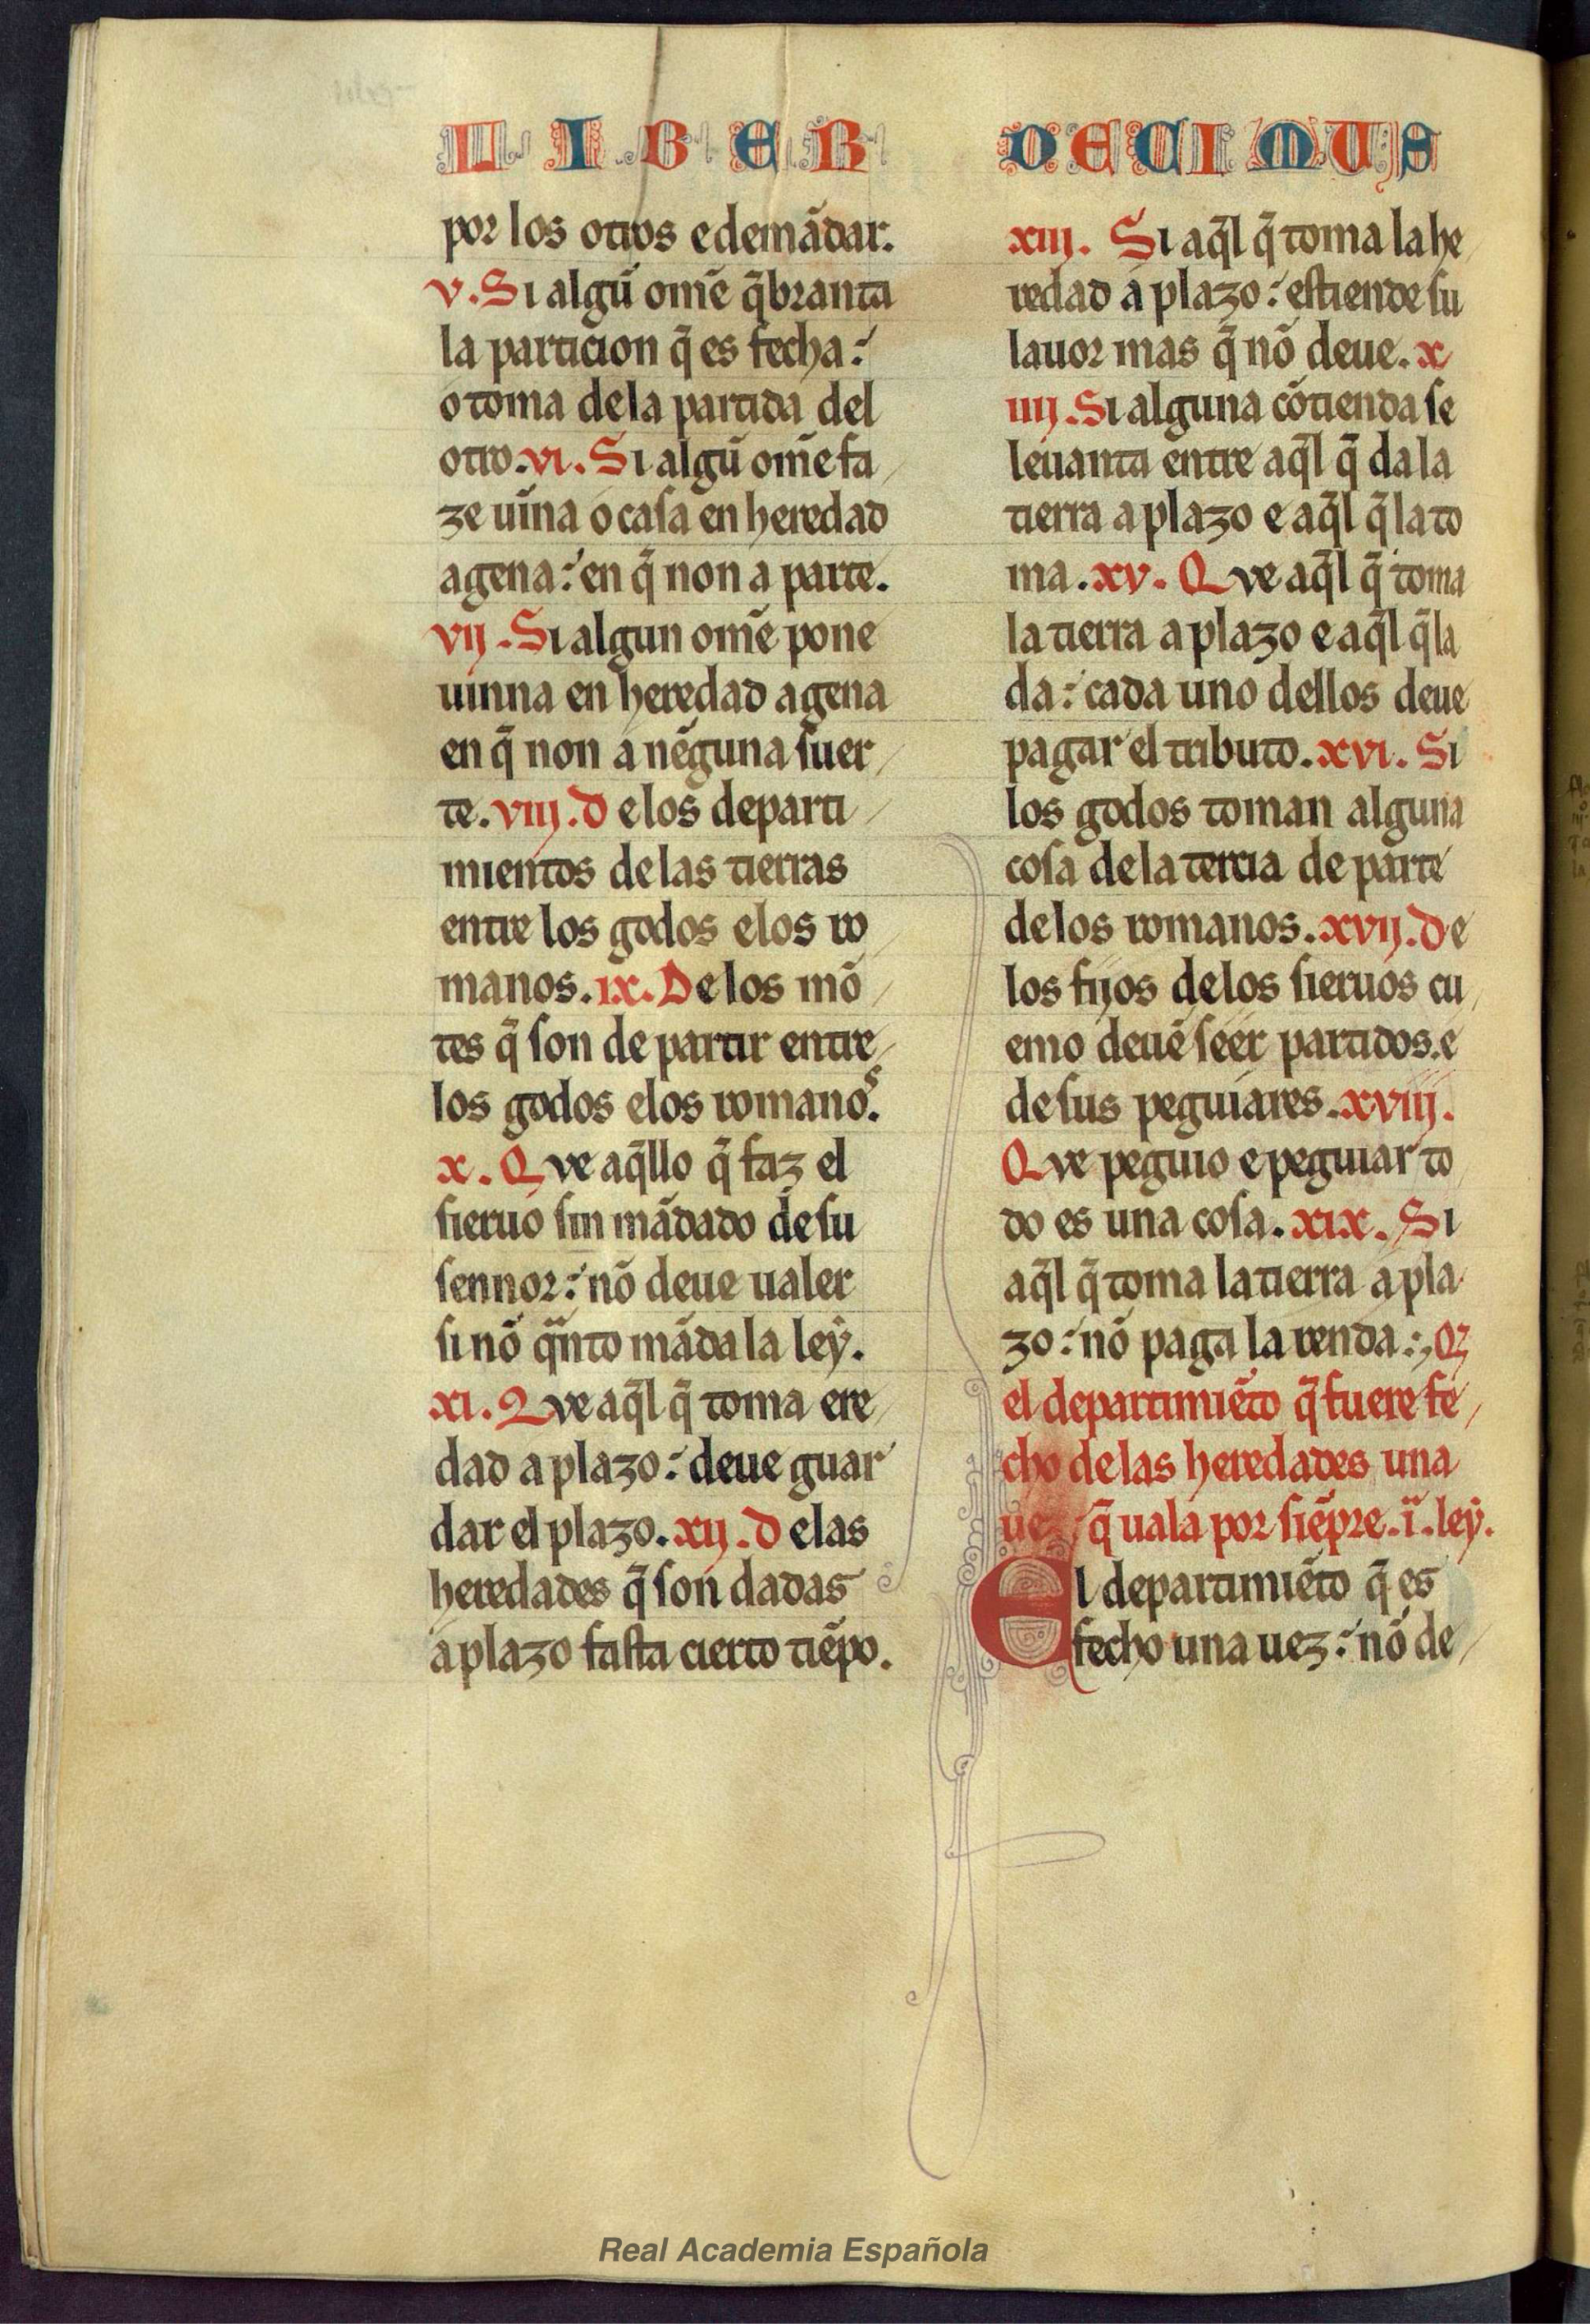 LIBER DECIMUS
por los otros e demãdar.
v. Si algũ om̃e q̃branta
la particion q̃ es fecha:
o toma dela partida del
otro. vi. Si algũ om̃e fa
ze uĩna o casa en heredad
agena: en q̃ non a parte.
vij. Si algun om̃e pone
uinna en heredad agena
en q̃ non a nẽguna suer
te. viij. De los departi
mientos de las tierras
entre los godos e los ro
manos. ix. De los mõ
tes q̃ son de partir entre
los godos e los romanos.
x. Que aq̃llo q̃ faz el
sieruo sin mãdado de su
sennor: nõ deue ualer
si nõ q̃nto mãda la ley.
xi. Que aq̃l q̃ toma ere
dad a plazo: deue guar
dar el plazo. xij. De las
heredades q̃ son dadas
a plazo fasta cierto tiẽpo.
xiij. Si aq̃l q̃ toma la he
redad a plazo: estiende su
lauor mas q̃ nõ deue. x
iiij. Si alguna cõtienda se
leuanta entre aq̃l q̃ da la
tierra a plazo e aq̃l q̃ la to
ma. xv. Que aq̃l q̃ toma
la tierra a plazo e aq̃l q̃ la
da: cada uno dellos deue
pagar el tributo. xvi. Si
los godos toman alguna
cosa de la tercia de parte
de los romanos. xvij. De
los fijos de los sieruos cu
emo deuẽ seer partidos. e
de sus peguiares. xviij.
Que peguio e peguiar to
do es una cosa. xix. Si
aq̃l q̃ toma la tierra a pla
zo: nõ paga la renda:, Q̃
el departimiẽto q̃ fuere fe
cho de las heredades una
uez q̃ uala por siẽpre. i. ley.
El departimiẽto q̃ es
fecho una uez: nõ de
Real Academia Española